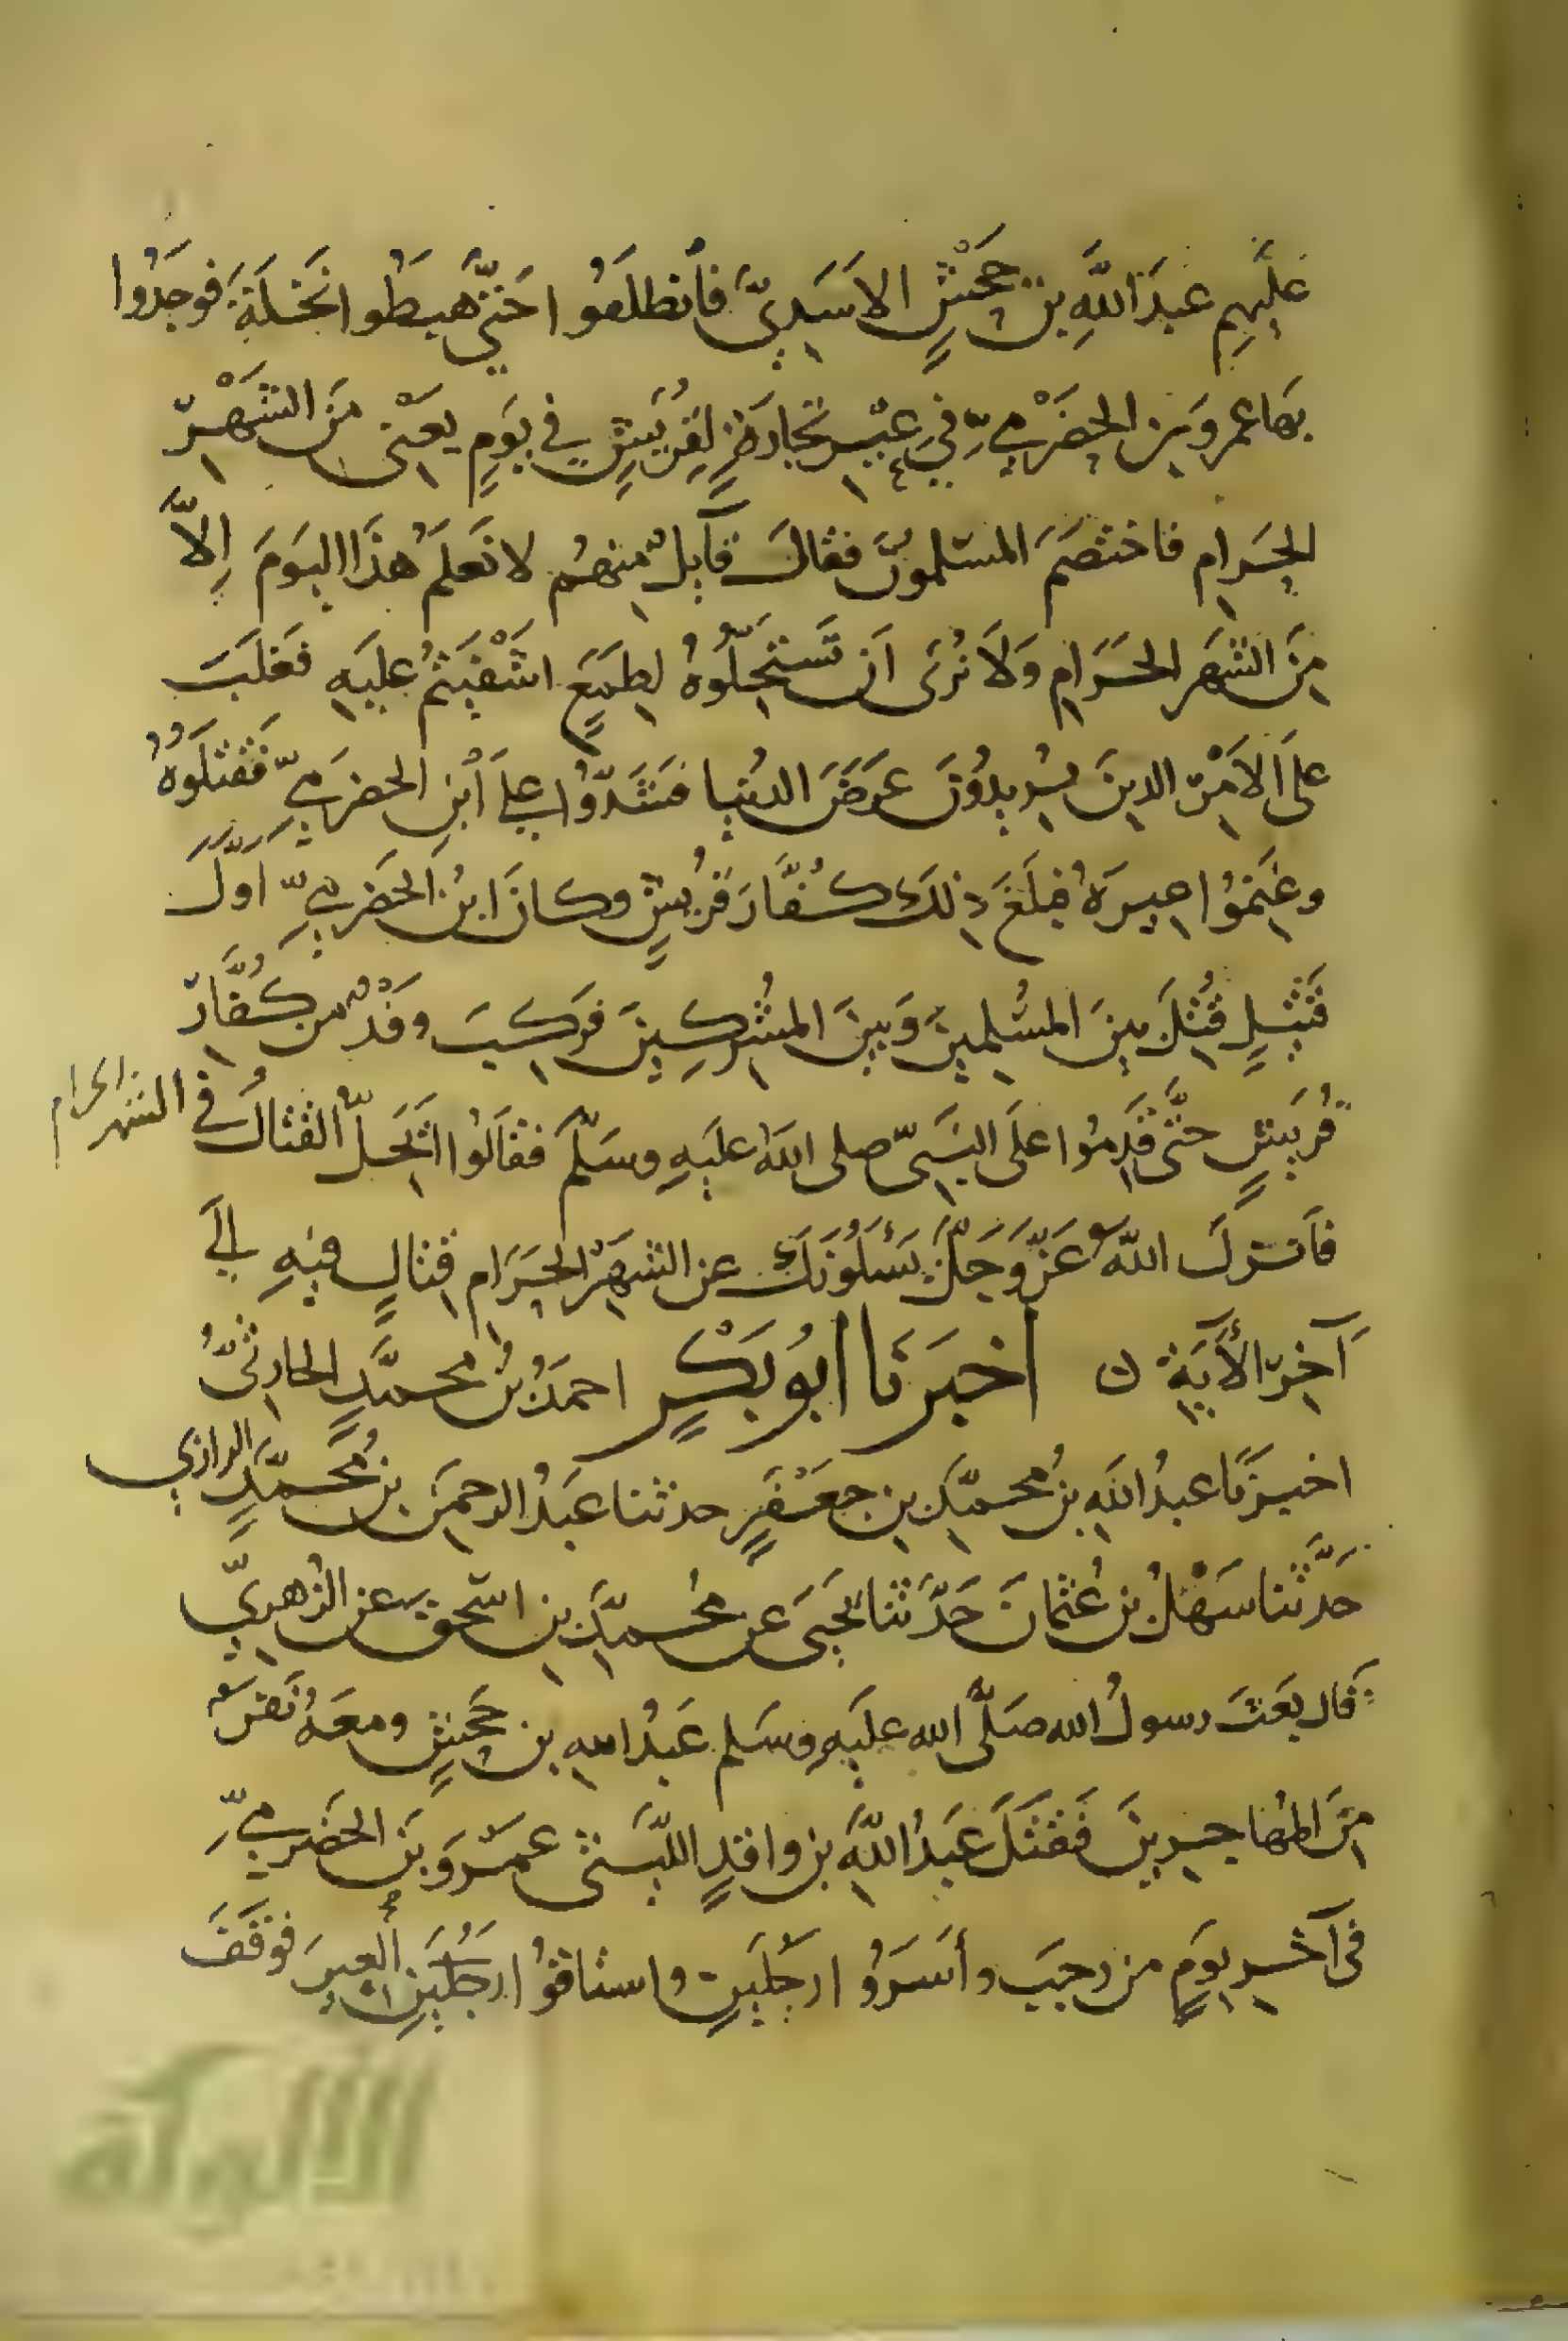 عَلَيْهِم عبدَ اللَّهِ بن جَحْشٍ الاَسَدِىَّ فاَنطلَقُوا حَتَّى هَبَطُوا نَخْلَةَ فوَجَدُوا
بهَا عمرو بن الحضْرَمِيِّ في عِيْرِ تجارَةٍ لِقُرَيشٍ في يَومٍ بَقِىَ مِنَ الشَهْرِ
الحَرَامِ فاختصَمَ المسلمونَ فقالَ قآيلٌ مِنهُم لا نَعلَمُ هذَا اليَومَ اِلاَّ
مِنَ الشَهرِ الحَرَامِ وَلاَ نُرَى اَن تَسْتَحِلُّوهُ لِطَمَعٍ اشْفَيتُمْ عليَهِ فغَلَبَ
على الاَمْرِ الذينَ يُريدُونَ عَرَضَ الدُنيا فشَدُّوا على اَبْنِ الحضرَمِيِّ فَقَتَلُوهُ
وغَنِمُوا عِيرَهُ فبَلَغَ ذلكَ كُفَّارَ قرُيشٍ وكانَ ابنُ الحَضرَمِيِّ اَوَّلَ
قَتِيلٍ قُتِلَ بينَ المسُلِمينَ وَبينَ المشُركِينَ فرَكبَ وفَدٌ من كُفَّارِ
قُرَيشٍ حتَّى قدِمُوا علَى النَبِىِّ صلى اللهُ عليَهِ وسَلَّمَ فقالُوا اَتَحِلّ القتالُ في الشهر الحرام
فاَنزلَ اللهُ عَزَّ وَجَلَّ يَسَلُونَكَ عن الشَهرِ الحَرَامِ قتالٍ فيهِ الَى
آخرِ الأَيَةِ ن اخبَرَنا ابُو بَكْرٍ احمَدُ بنُ محمَّدٍ الحارِثىُّ
اخبرَنا عبدُ اللهِ بنُ محمَّدِ بنِ جعَفَرٍ حدثنا عَبدُ الرحمَنِ بنُ مُحمَّدٍ الرازي
حَدَّثَنا سَهْلُ بنُ عُثمانَ حَدَّثنا يَحيَى عن مُحمَّدِ بنِ اسحَق عن الزُهرِيِّ
قال بعَثَ رسولُ الله صَلَّى الله عليَهِ وسَلم عَبدَ اللهِ بن جَحشٍ ومعَهُ نَفَرٌ
مِنَ المُهاجِرينَ فقَتَلَ عَبدُ اللَّهِ بن واقدٍ الليَّثىُ عَمْرَو بنَ الحَضرمِيِّ
فى آخِرِ يَومٍ من رجبَ وأسَرُوا رجُلَينِ واستاقُوا رجُلَينِ العِيرَ فوَقَفَ
الألوكة